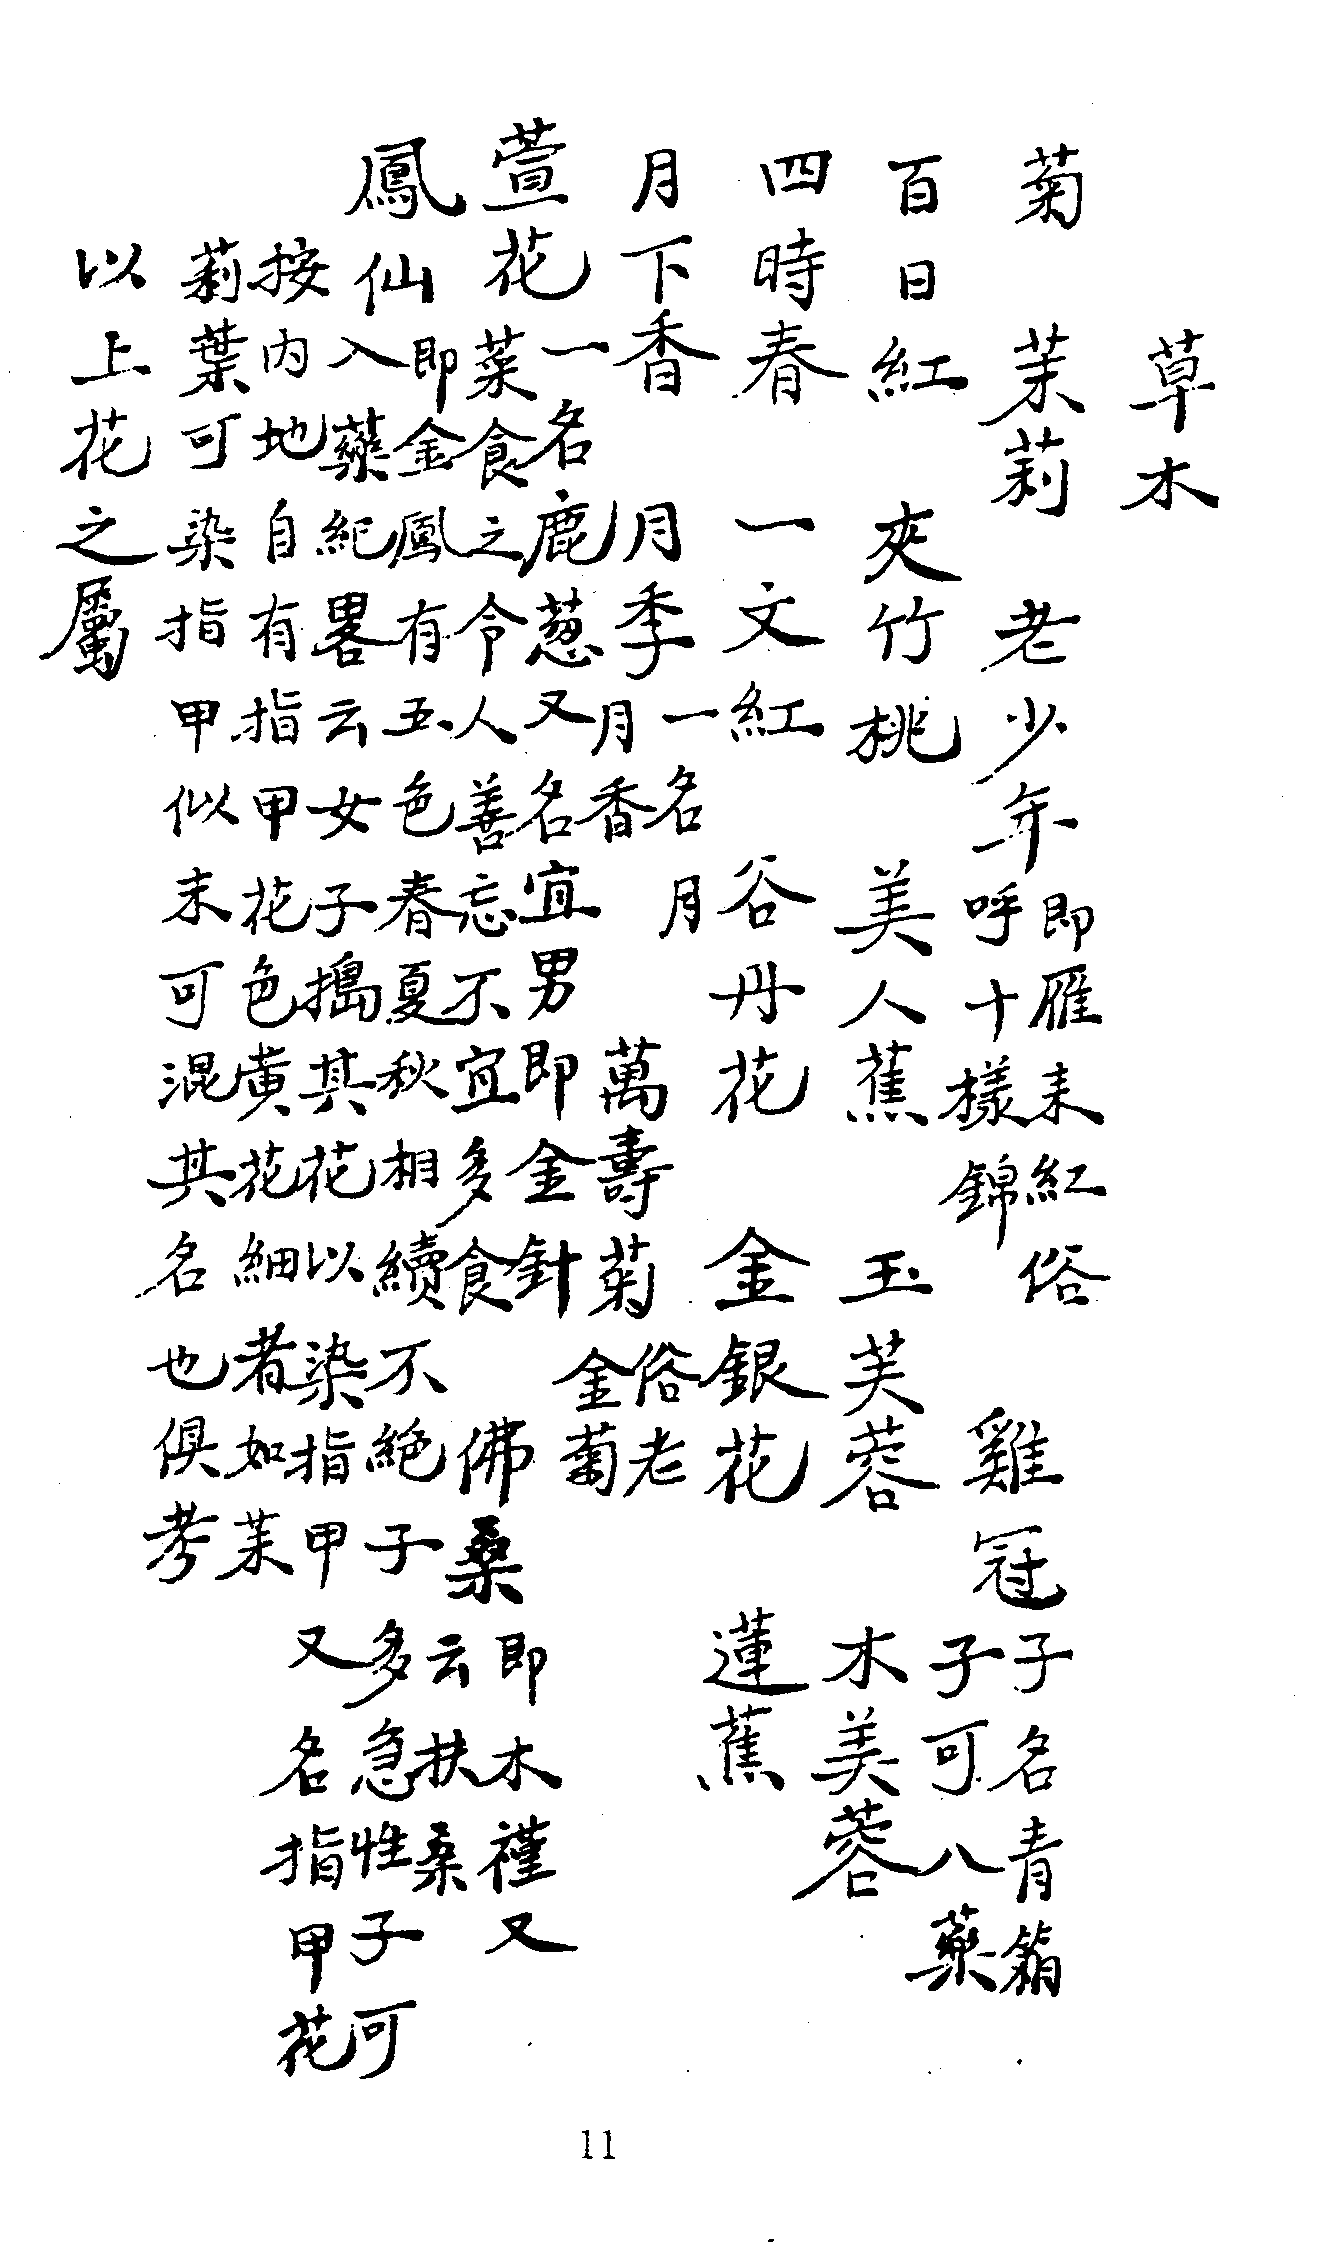 草木
菊 茉莉 老少年 即雁來紅俗呼十樣錦 雞冠子 子名青箱子可入藥
百日紅 夾竹桃 美人蕉 玉芙蓉 木芙蓉
四時春 一文紅 谷丹花 金銀花 蓮蕉
月下香 月季 一名月月香 萬壽菊 俗老金菊
萱花 一名鹿葱又名宜男即金針菜食之令人善忘不宜多食 佛桑 即木槿又云扶桑
鳳仙 即金鳳有五色春夏秋相續不絕子多急性子可入藥紀畧云女子搗其花以染指甲又名指甲花
按內地自有指甲花色黄花細者如茉
莉葉可染指甲似未可混其名也俱考
以上花之屬
11